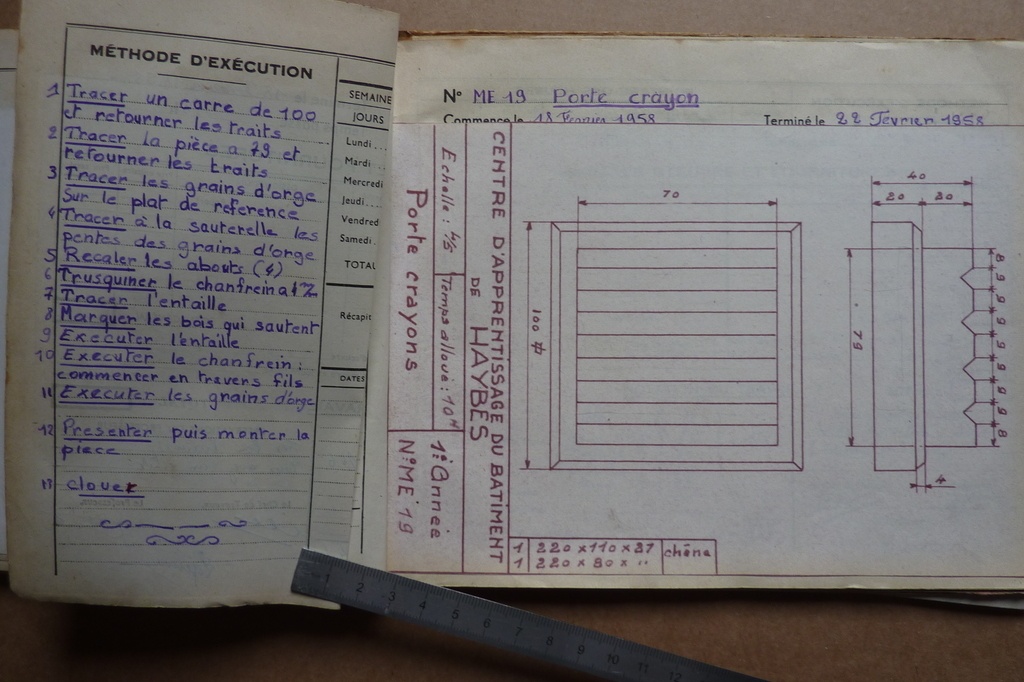 MÉTHODE D'EXÉCUTION
1 Tracer un carre de 100
et retourner les traits
2 Tracer la pièce a 79 et
retourner les traits
3 Tracer les grains d'orge
Sur le plat de reference
4 Tracer à la sauterelle les
pentes des grains d'orge
5 Recaler les abouts (4)
6 Trusquiner le chanfrein a 4 %
7 Tracer l'entaille
8 Marquer les bois qui sautent
9 Executer l'entaille
10 Executer le chanfrein :
commencer en travers fils
11 Executer les grains d'orge
12 Presenter puis monter la
piece
13 clouer
SEMAINE
JOURS
Lundi . . .
Mardi . . .
Mercredi
Jeudi . . .
Vendred
Samedi .
TOTAL
Récapit
DATES
N° ME 19 Porte crayon
Commencé le 18 Fevrier 1958 Terminé le 22 Fevrier 1958
CENTRE D'APPRENTISSAGE DU BATIMENT
DE
HAYBES
Echelle : 4/5
Temps alloué : 10H
Porte crayons
1e Année
N° ME 19
70
100
40
20 20
79
8 9 9 9 9 9 9 9 8
4
1 220 x 110 x 27 chêne
1 220 x 80 x "
1 2 3 4 5 6 7 8 9 10 11 12